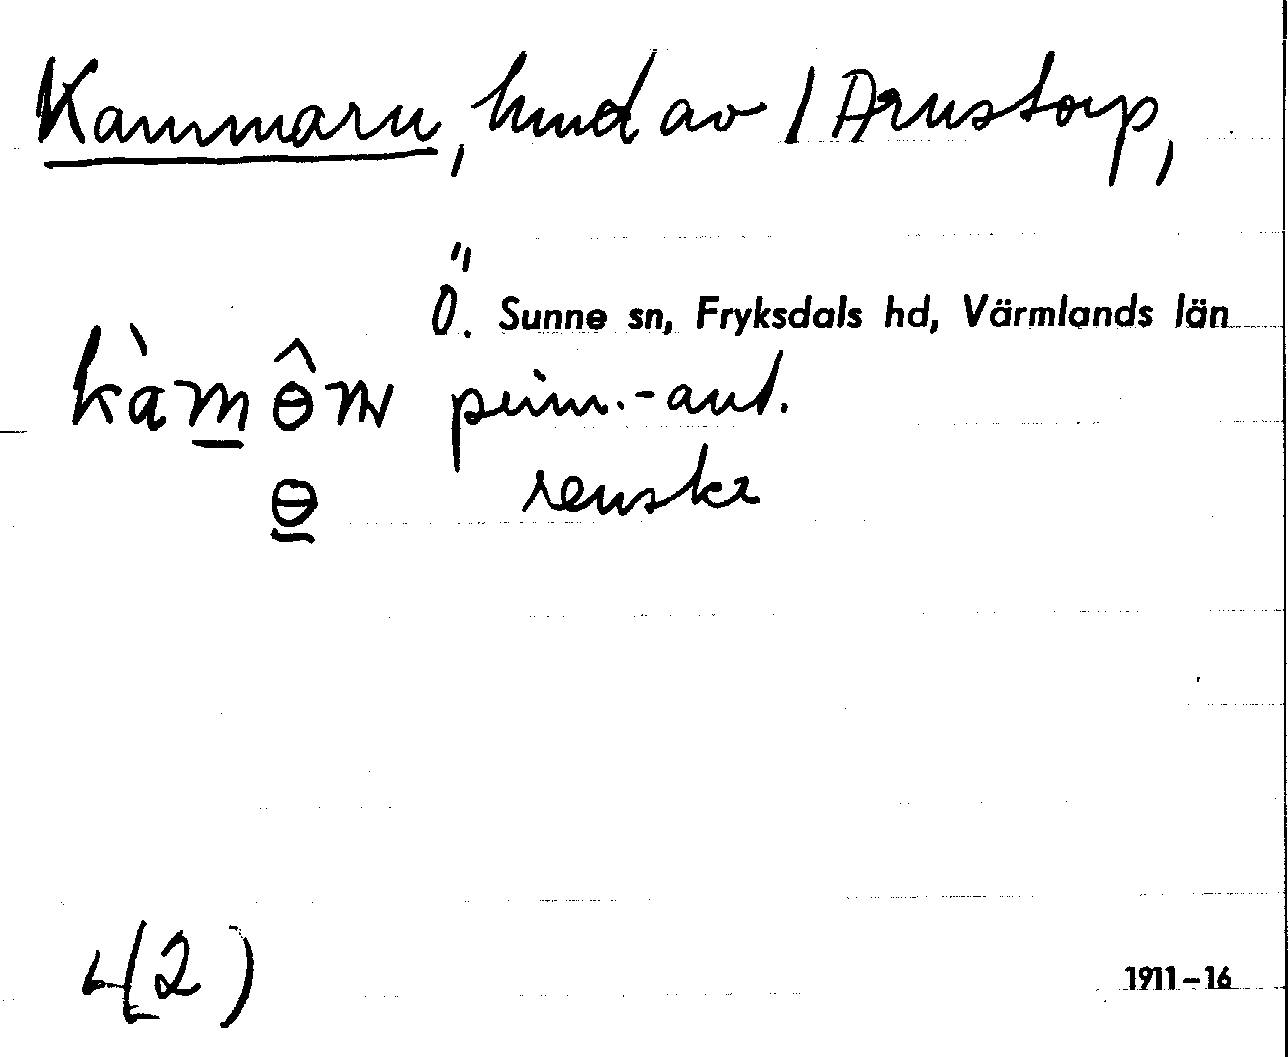 Kammarn, hmd av 1 Arnstorp,
Ö. Sunne sn, Fryksdals hd, Värmlands län
prim.-ant.
renskr
4(2)
1911–16